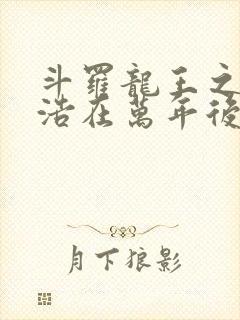 斗羅龍王之
浩在萬年後
月下狼影